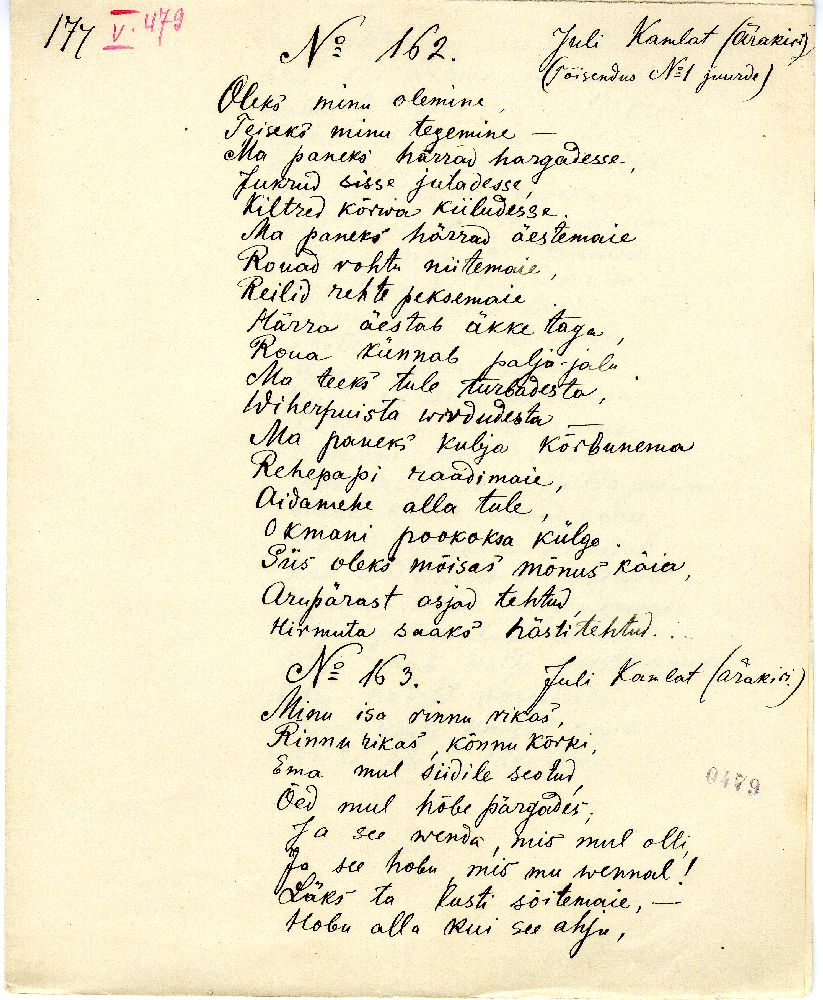 177 V. 479
№ 162. Juli Kamlat (ärakiri)
(Töisendus № 1 juurde)
Oleks minu olemine,
Teiseks minu tegemine —
Ma paneks härrad hargadesse,
Junrud sisse jutadesse,
Kiltred kõrwa kiiludesse.
Ma paneks härrad äestemaie
Rouad rohtu niitemaie,
Reilid rehte peksemaie.
Härra äestab äkke taga,
Roua künnab palja-jalu.
Ma teeks tule turbadesta,
Wiherpuista wirdudesta —
Ma paneks kubja kõrbunema
Rehepapi raadimaie,
Aidamehe alla tule,
Okmani pookoksa külge.
Siis oleks mõisas mõnus käia,
Arupärast asjad tehtud,
Hirmuta saaks hästi tehtud.
№ 163. Juli Kamlat (ärakiri.)
Minu isa rinnu rikas,
Rinnu rikas, kõnnu kõrki,
Ema mul siidile seotud,
Õed mul hõbe pärgades,
Ja see wenda, mis mul olli,
Ja see hobu, mis mu wennal!
Läks ta lusti sõitemaie, —
Hobu alla kui see ahju,
0479